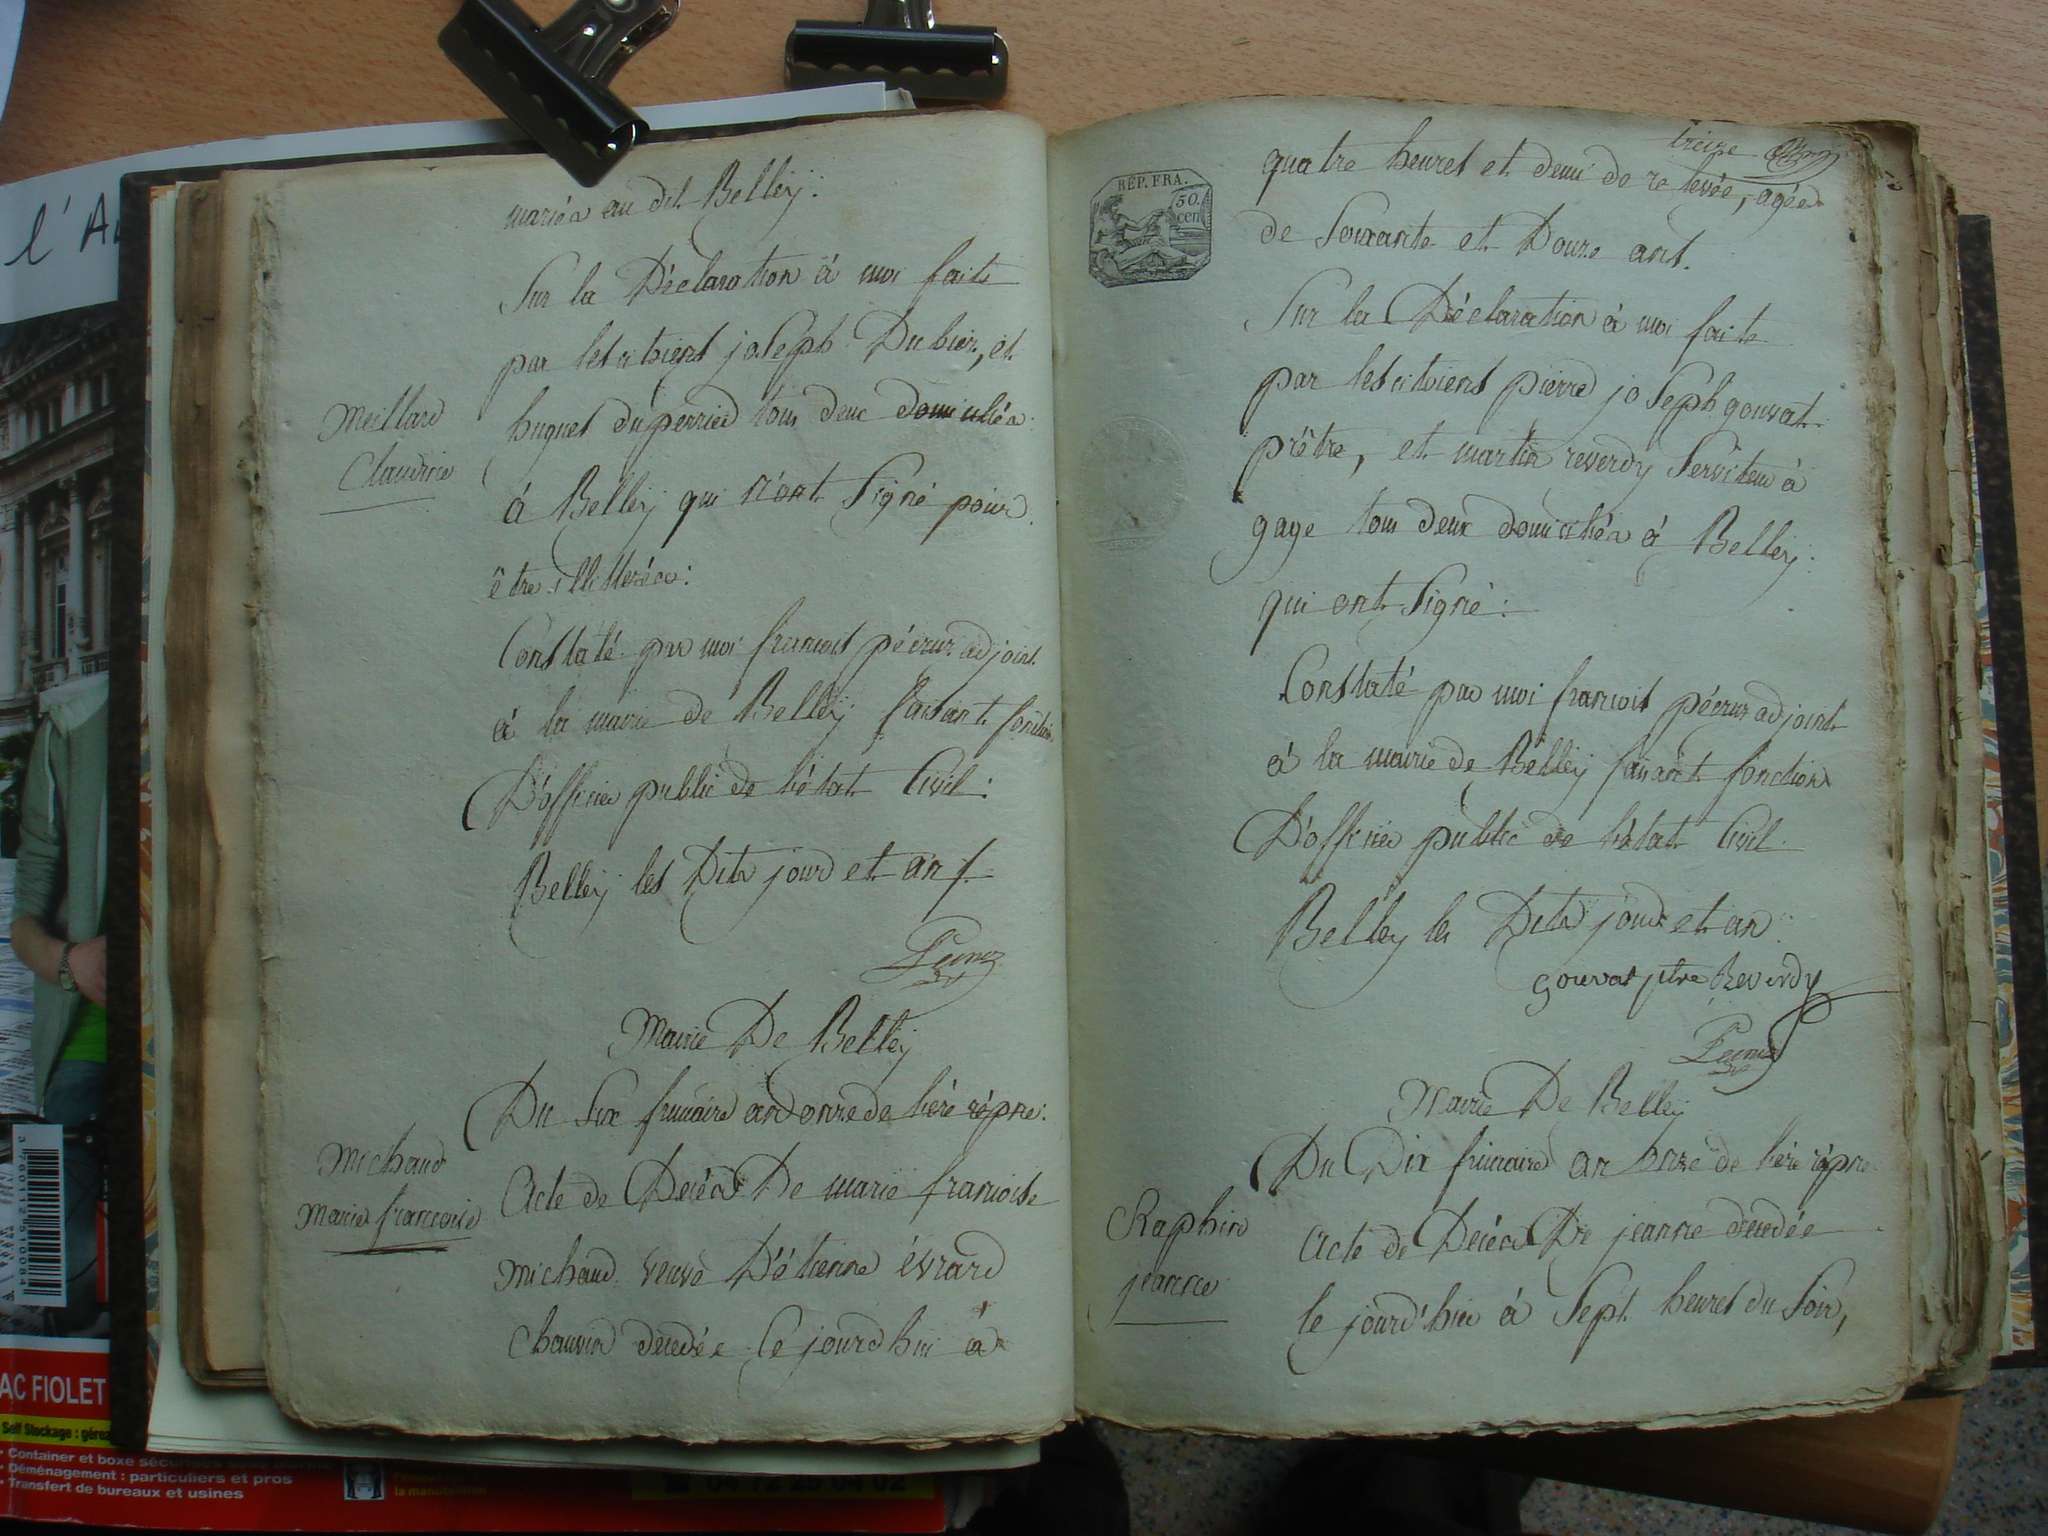 mariés au dit Belleÿ.
Sur la Déclaration à moi faite
par les citoiens joseph Dubier, et
hugues duperrier tous deux domiciliés
à Belleÿ qui n'ont Signé pour
être illitterés:
Constaté par moi francois pécruz adjoint
à la mairie de Belleÿ faisant fonction
D'officier public de l'état Civil:
Belleÿ les Dits jour et an /.
Meillard
Claudine
Mairie De Belleÿ
Du Six frimaire an onze de l'ère répne:
Acte de Décès De marie francoise
michaud veuve D'étienne évrard
chauvin decedée Ce jourdhui à
michaud
marie françoise
treize
REP. FRA.
50.
cen
quatre heures et demi de relevée, agée
de Soixante et Douze ans.
Sur la Déclaration à moi faite
par les citoiens pierre joseph gouvat
prêtre, et martin reverdy Serviteur à
gage tous deux domiciliés à Belleÿ
qui ont Signé:
Constaté par moi francois pécruz adjoint
à la mairie de Belleÿ faisant fonction
D'officier public de l'état Civil.
Belleÿ les Dits jour et an
gouvat ptre Reverdy
Mairie De Belleÿ
Du Dix frimaire an onze de l'ère répne
Acte de Décès De jeanne decedée
le jourd'hier à Sept heures du Soir,
Raphin
jeanne
l'A
AC FIOLET
Self Stockage : gérez
• Container et boxe sécurisés
• Déménagement : particuliers et pros
• Transfert de bureaux et usines
la manutention